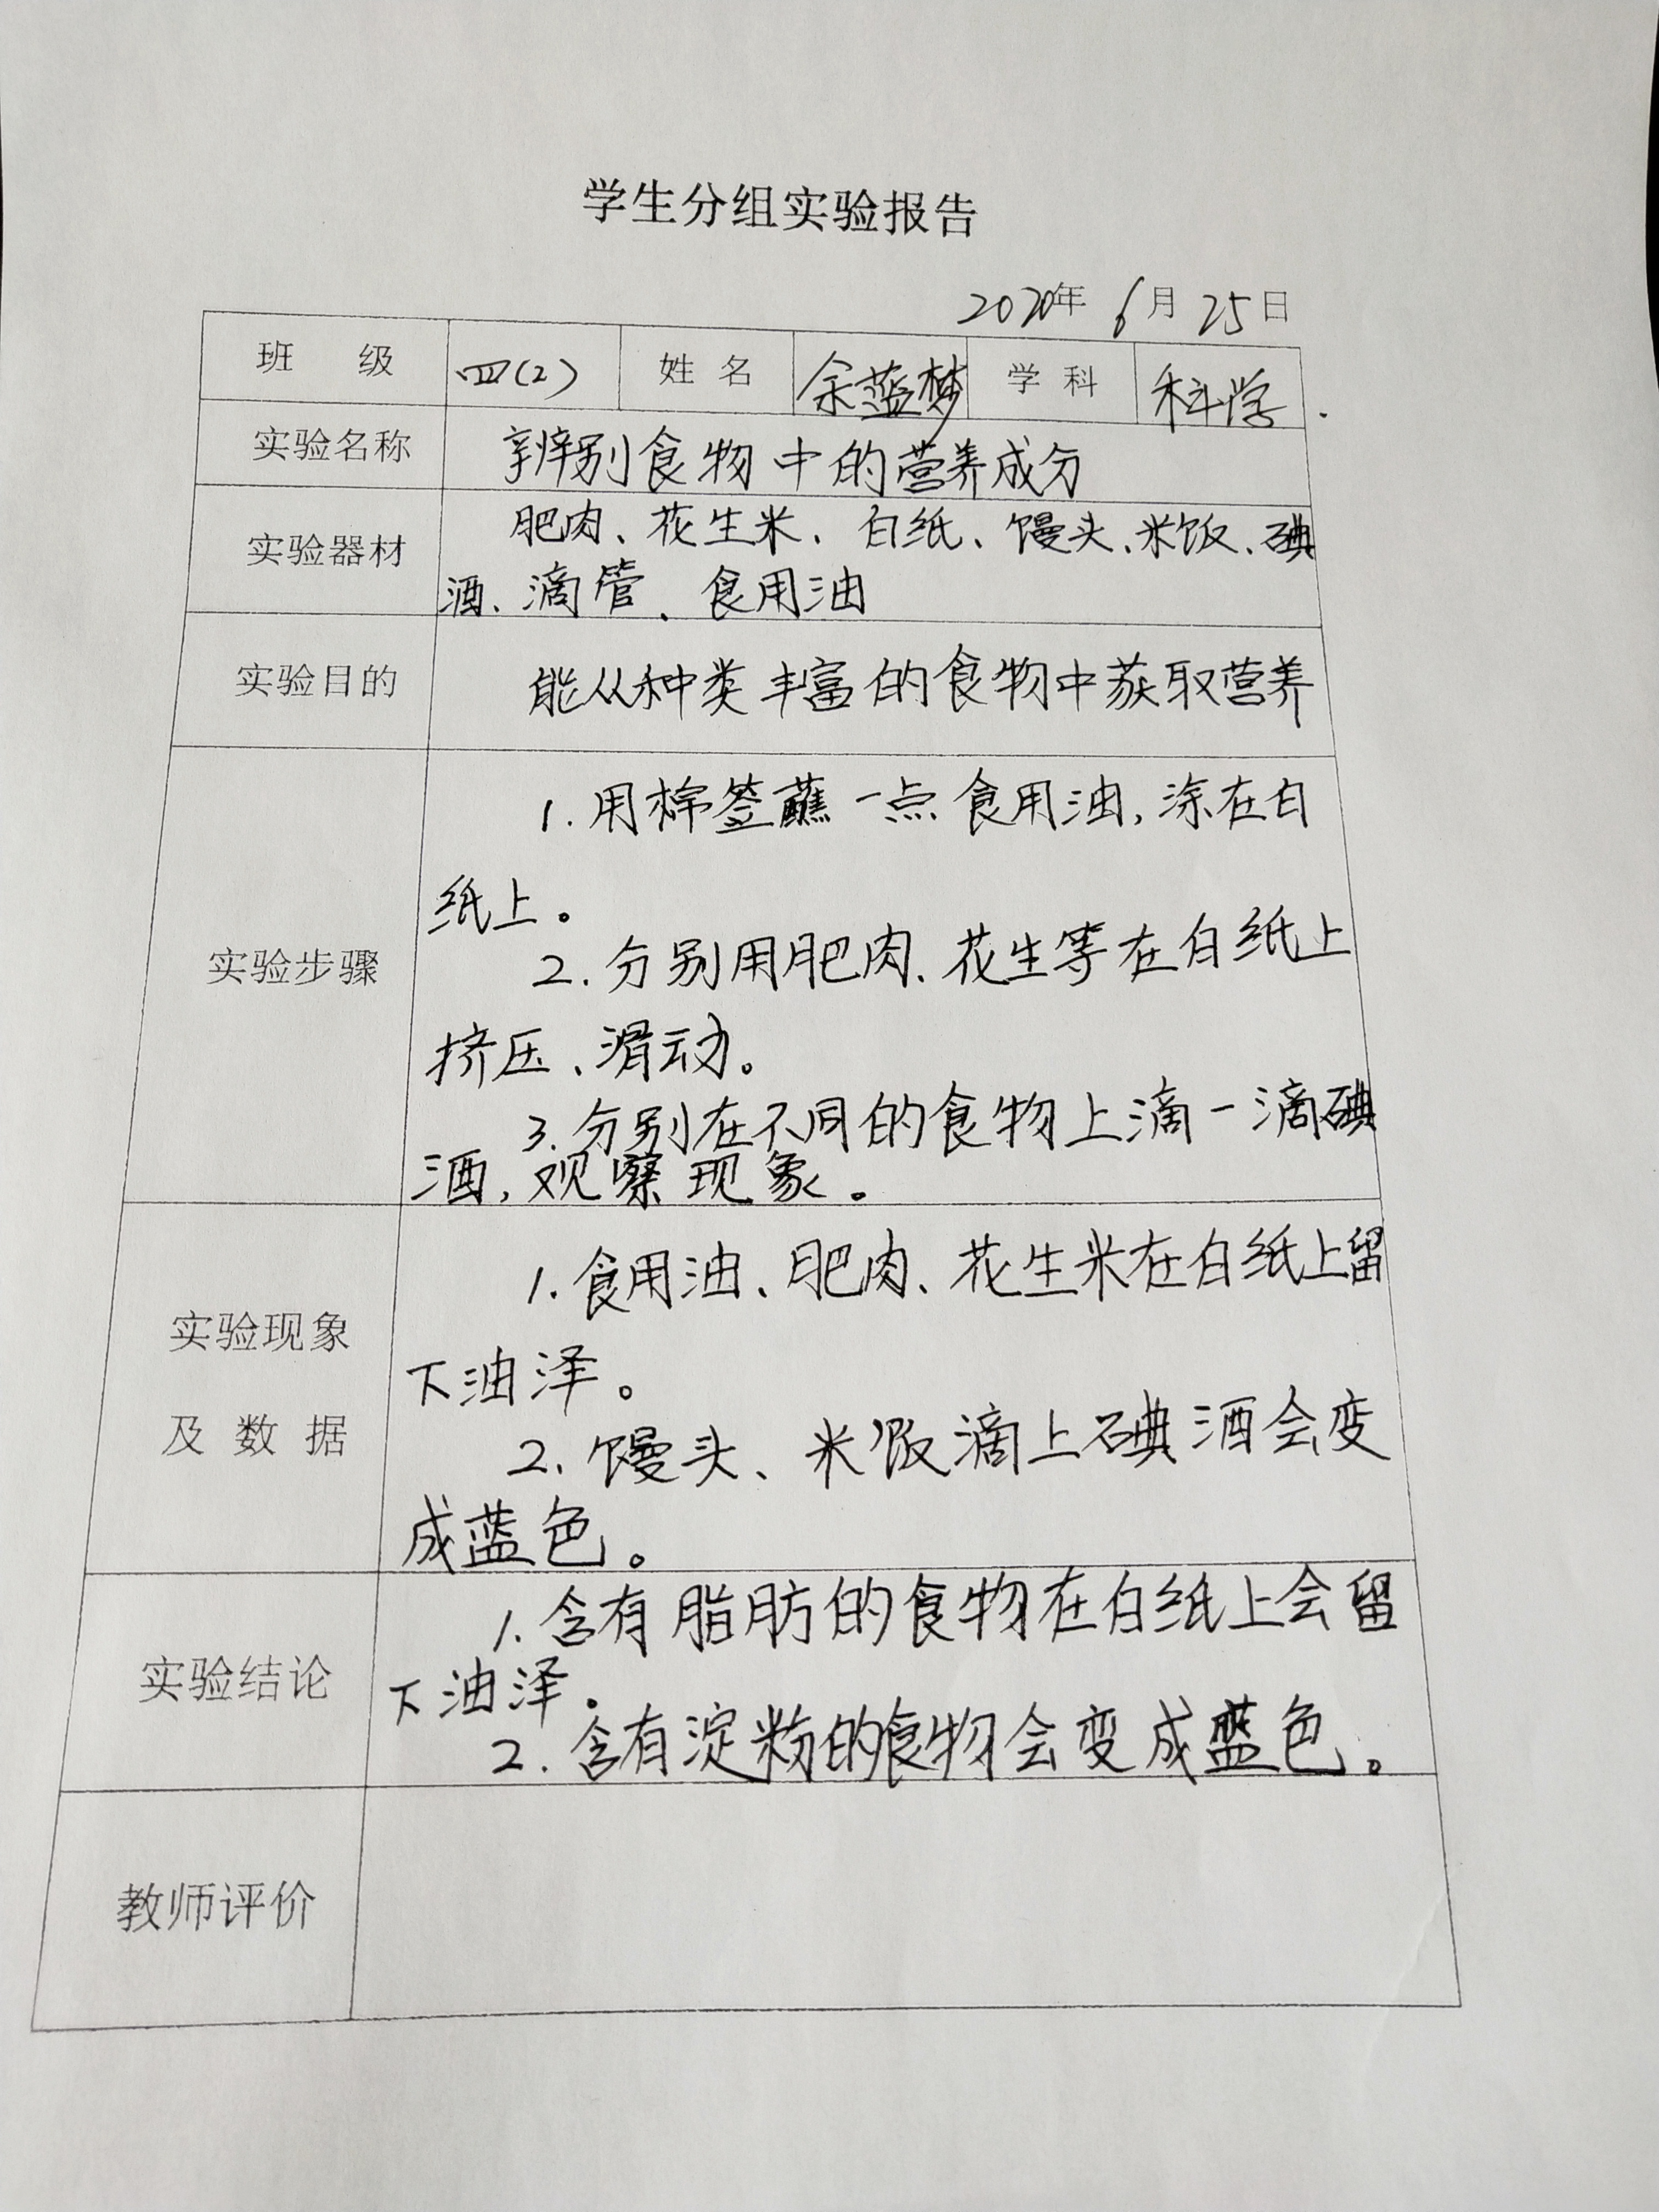 学生分组实验报告
2020年 6月 25日
班 级 四(2) 姓 名 余蓝梦 学 科 科学.
实验名称 辨别食物中的营养成分
实验器材 肥肉、花生米、白纸、馒头、米饭、碘
酒、滴管、食用油
实验目的 能从种类丰富的食物中获取营养
1.用棉签蘸一点食用油,涂在白
纸上。
实验步骤
2.分别用肥肉、花生等在白纸上
挤压、滑动。
3.分别在不同的食物上滴一滴碘
酒,观察现象。
1.食用油、肥肉、花生米在白纸上留
实验现象
下油泽。
及 数 据
2.馒头、米饭滴上碘酒会变
成蓝色。
1.含有脂肪的食物在白纸上会留
实验结论 下油泽。
2.含有淀粉的食物会变成蓝色。
教师评价